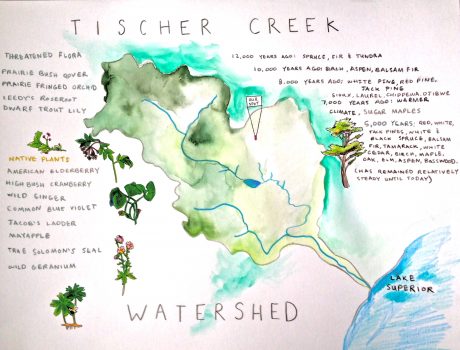 TISCHER CREEK
THREATENED FLORA
PRAIRIE BUSH CLOVER
PRAIRIE FRINGED ORCHID
LEEDY'S ROSEROOT
DWARF TROUT LILY
NATIVE PLANTS
AMERICAN ELDERBERRY
HIGH BUSH CRANBERRY
WILD GINGER
COMMON BLUE VIOLET
JACOB'S LADDER
MAYAPPLE
TRUE SOLOMON'S SEAL
WILD GERANIUM
12,000 YEARS AGO: SPRUCE, FIR & TUNDRA
10,000 YEARS AGO: BIRCH, ASPEN, BALSAM FIR
8,000 YEARS AGO: WHITE PINE, RED PINE,
JACK PINE
SIOUX, LAUREL, CHIPPEWA, OJIBWE
7,000 YEARS AGO: WARMER
CLIMATE, SUGAR MAPLES
6,000 YEARS: RED, WHITE,
JACK PINES, WHITE &
BLACK SPRUCE, BALSAM
FIR, TAMARACK, WHITE
CEDAR, BIRCH, MAPLE,
OAK, ELM, ASPEN, BASSWOOD.
(HAS REMAINED RELATIVELY
STEADY UNTIL TODAY)
LAKE
SUPERIOR
WATERSHED